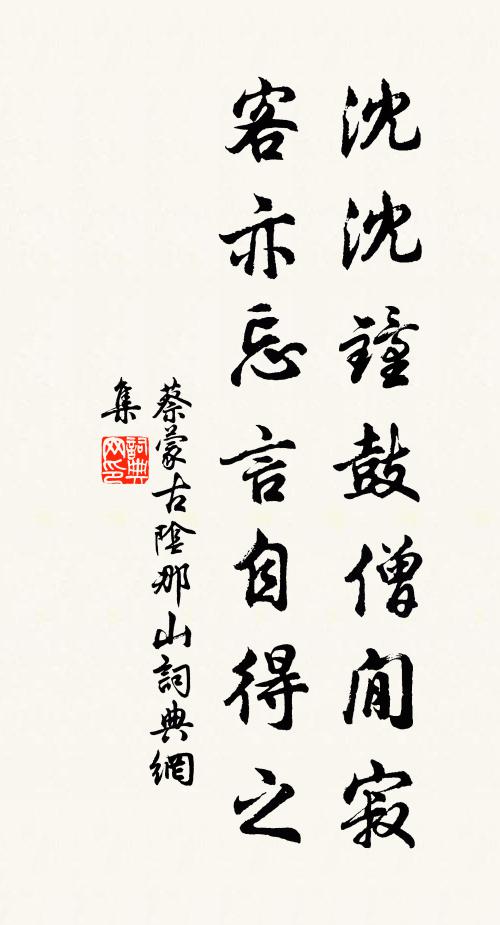 沈沈鐘鼓僧閒寂
客亦忘言自得之
蔡蒙古陰那山詞典網
集
詞典網印